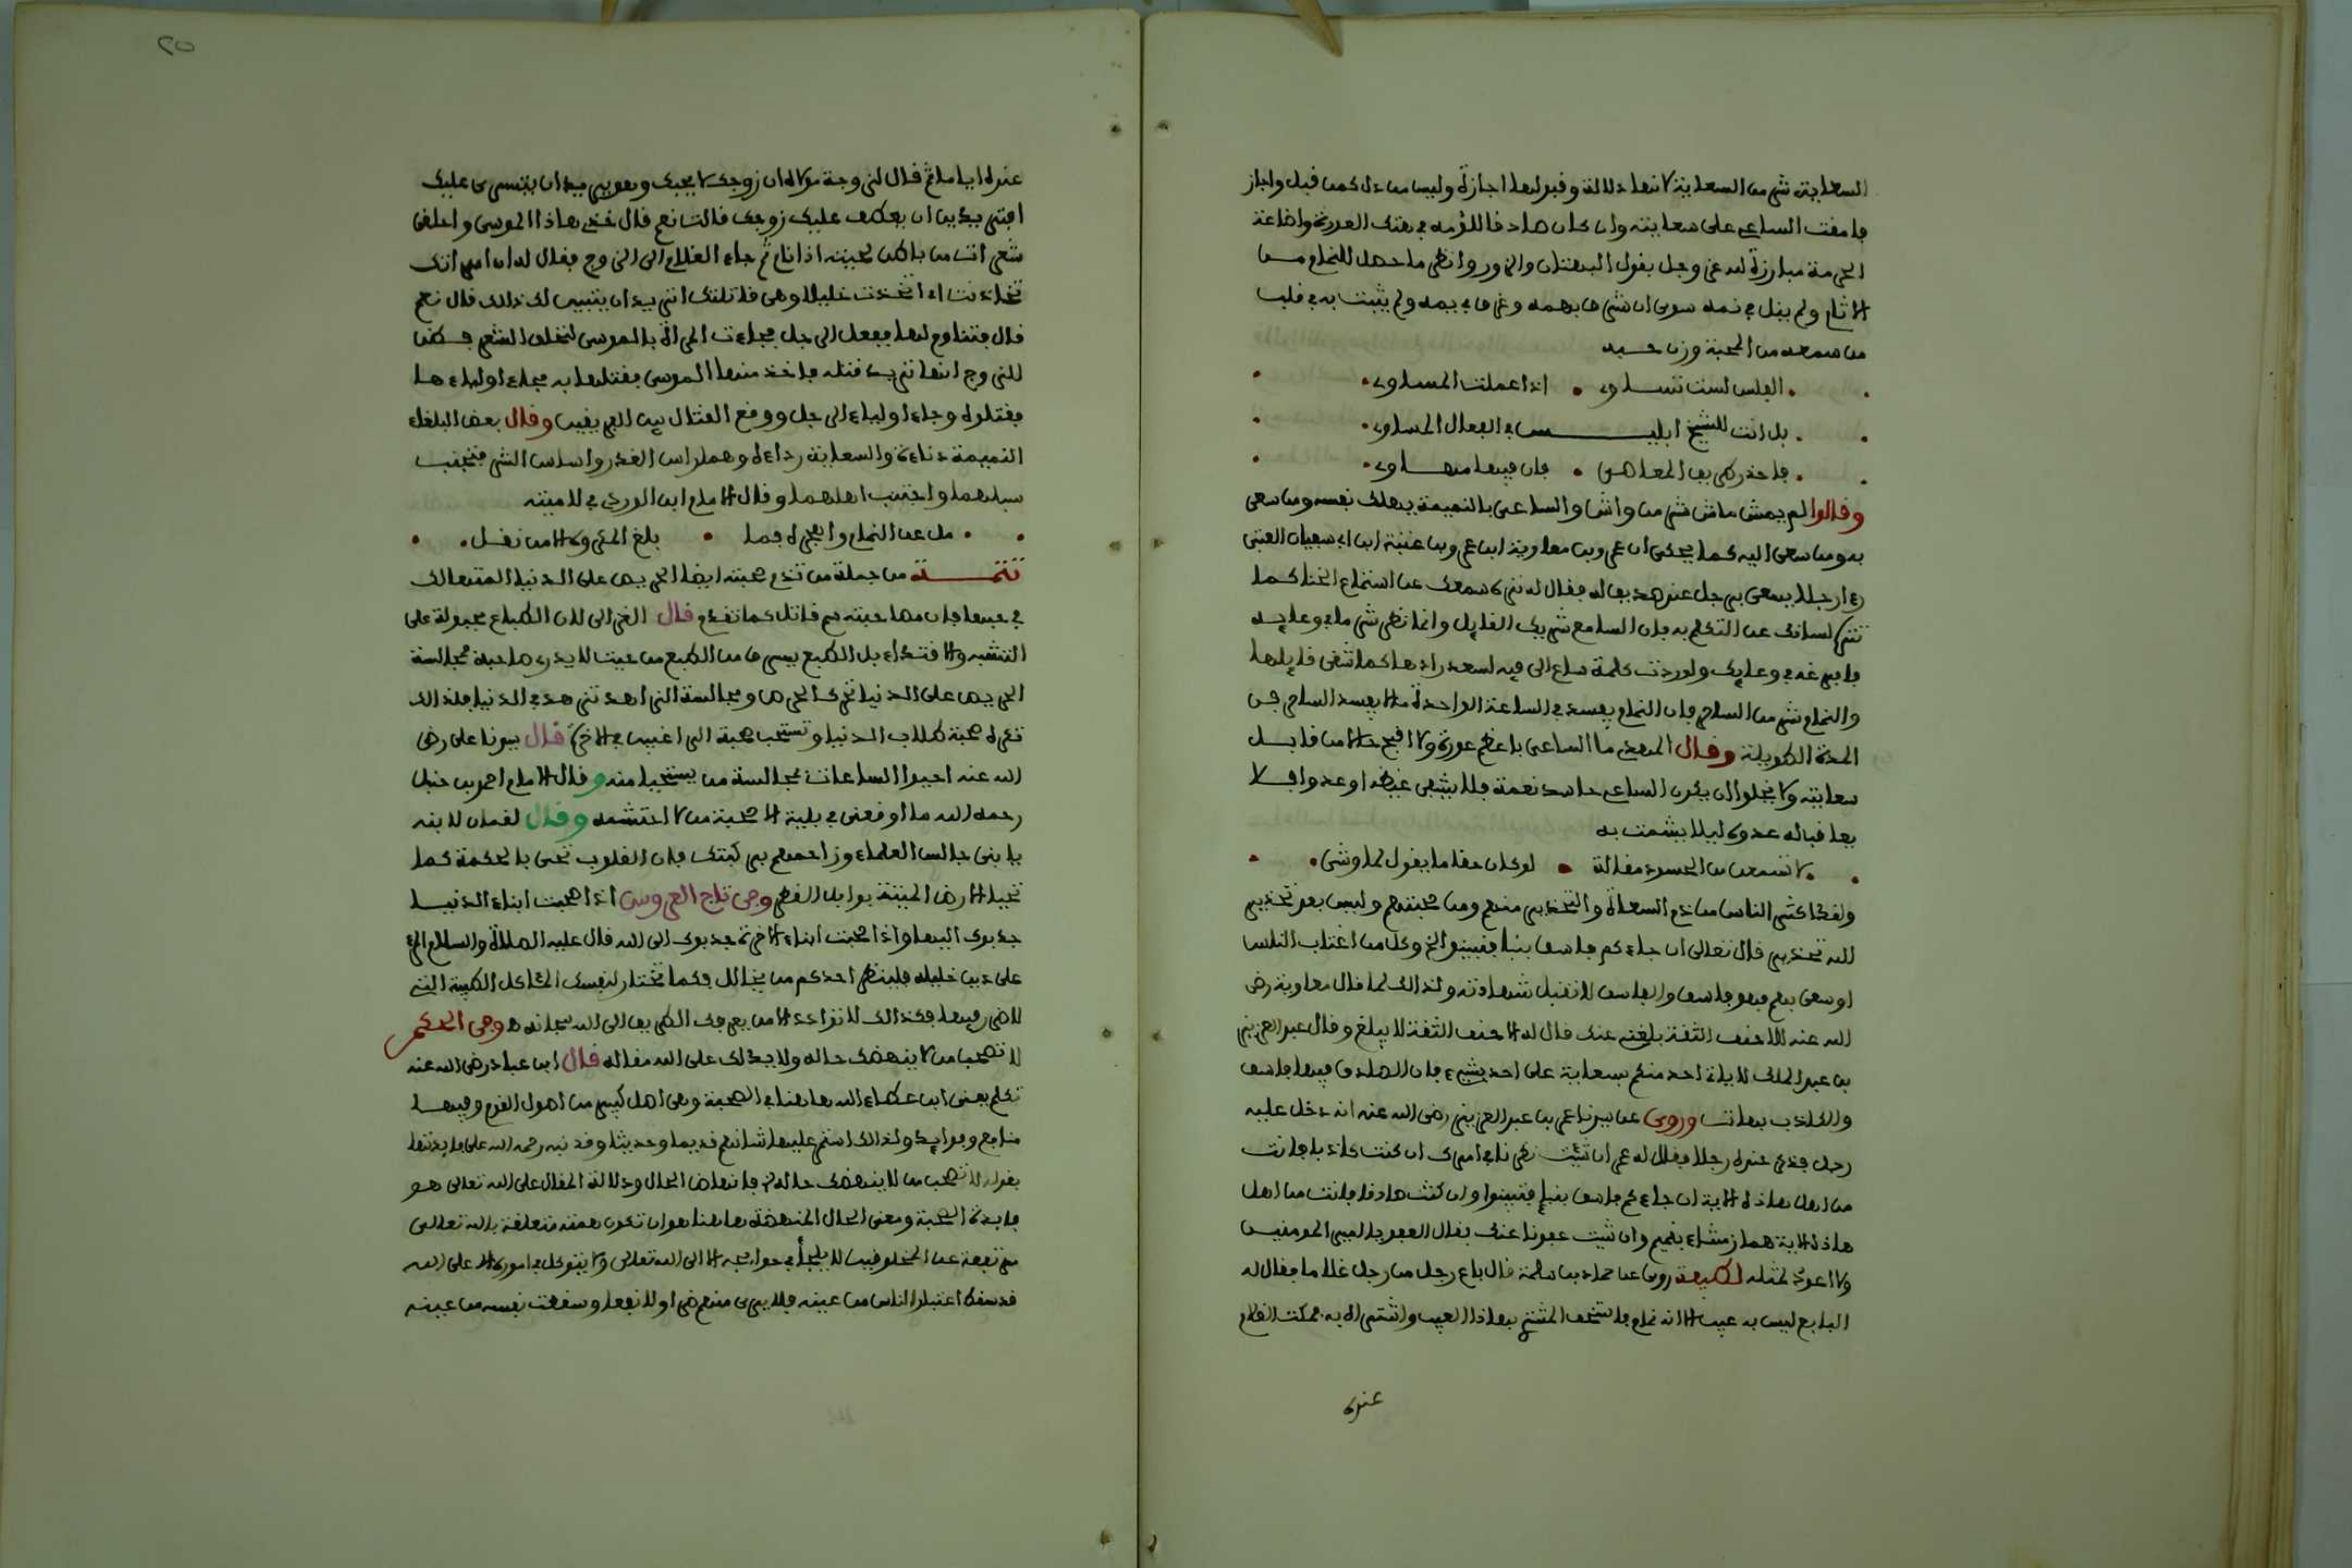 السعاية شر من السعاية لانها دلالة وقبولها اجازة وليس من دل كمن قبل واجاز
فامقت الساعي على سعايته وان كان صادقا للؤمه في هتك العورة واضاعة
الحرمة مبارزة لله عز وجل بقول البهتان والزور وانظر ما حصل للنمام من
الاثام ولم ينل في نمه سوى ان شرفا بهمه وغرما في يمه ولم يثبت به في قلب
من سمعه من المحبة وزن حبه
ابليس لست تساوي اذا عملت المساوي
بل انت للشيخ ابليس في الفعال المساوي
فاحذر طريق المعاصي فان فيها مهاوي
وقالوا لم يمش ماش شر من واش والساعي بالنميمة يهلك نفسه ومن سعى
به ومن سعى اليه كما يحكى ان عمرو بن معاوية ابن عمرو بن عتبة ابن ابي سفيان العتبي
رءا رجلا يسعى برجل عند صديق له فقال له نزه سمعك عن استماع الخنا كما
تنزه لسانك عن التكلم به فان السامع شريك القايل وانما نظر شر ما في وعايه
فافرغه في وعايك ولو ردت كلمة ساع الى فيه لسعد رادها كما شقى قايلها
والنمام شر من الساحر فان النمام يفسد في الساعة الواحدة ما لا يفسد الساحر في
المدة الطويلة وقال المهدي ما الساعي باعظم عورة ولا اقبح حالا من قابل
سعايته ولا يخلوا ان يكون الساعي حاسد نعمة فلا يشفى غيظه او عدوا فلا
يعاقب له عدوه ليلا يشمت به
لا تسمعن من الحسود مقالة لو كان حقا ما يقول لما وشى
ولقد اكثر الناس من ذم السعاة والتحذير منهم ومن صحبتهم وليس بعد تحذير
الله تحذير قال تعالى ان جاءكم فاسق بنبا فتبينوا الخ وكل من اغتاب الناس
او سعى بهم فهو فاسق والفاسق لا تقبل شهادته ولذالك لما قال معاوية رضي
الله عنه للاحنف الثقة بلغني عنك قال له الاحنف الثقة لا يبلغ وقال عبد العزيز
بن عبد الملك لا يات احد منكم بسعاية على احد بشيء فان الصادق فيها فاسق
والكاذب بهات وروي عن سيدنا عمر بن عبد العزيز رضي الله عنه انه دخل عليه
رجل فذكر عنده رجلا فقال له عمر ان شئت نظرنا في امرك ان كنت كاذبا فانت
من اهل هاذه الاية ان جاءكم فاسق بنبإ فتبينوا وان كنت صادقا فانت من اهل
هاذه الاية هماز مشاء بنميم وان شيت عفونا عنك فقال العفو يا امير المومنين
ولا اعود لمثله لطيفة روي عن حماد بن سلمة قال باع رجل من رجل غلاما فقال له
البايع ليس به عيب الا انه نمام فاستخف المشتري بهاذا العيب واشتراه به فمكث الغلام
عنده
20
عنده اياما ثم قال لزوجة مولاه ان زوجك لا يحبك وهو يريد ان يتسرى عليك
افتريدين ان يعطف عليك زوجك قالت نعم قال خذي هاذا الموسى واحلقي
شعرات من باطن لحيته اذا نام ثم جاء الغلام الى الزوج فقال له ان امراتك
تخادنت اي اتخذت خليلا وهي قاتلتك اتريد ان يتبين لك ذلك قال نعم
قال فتناوم لها ففعل الرجل فجاءت المراة بالموسى لتحلق الشعر فظن
الزوج انها تريد قتله فاخذ منها الموسى فقتلها به فجاء اولياءها
فقتلوه وجاء اولياء الرجل ووقع القتال بين الفريقين وقال بعض البلغاء
النميمة دناءة والسعاية رداءة وهما راس الغدر واساس الشر فتجنب
سبلهما واجتنب اهلهما وقال الامام ابن الوردي في لاميته
مل عن النمام واهجره فما بلغ المكروه الا من نقل
تتمة من جملة من تذم صحبته ايضا الحريص على الدنيا المتهالك
في حبها فان صاحبته سم قاتل كما تقدم قال الغزالى لان الطباع مجبولة على
التشبه والاقتداء بل الطبع يسرق من الطبع من حيث لا يدري صاحبه فمجالسة
الحريص على الدنيا تحرك الحرص ومجالسة الزاهد تزهد في الدنيا فلذالك
تكره صحبة طلاب الدنيا وتستحب صحبة الراغبين في الاخرة قال سيدنا علي رضي
الله عنه احيوا الساعات بمجالسة من يستحيا منه وقال الامام احمد بن حنبل
رحمه الله ما اوقعني في بلية الا صحبة من لا احتشمه وقال لقمان لابنه
يا بني جالس العلماء وزاحمهم بركبتك فان القلوب تحيى بالحكمة كما
تحيا الارض الميتة بوابل القطر وفي تاج العروس اذا صحبت ابناء الدنيا
جذبوك اليها واذا صحبت ابناء الاخرة جذبوك الى الله قال عليه الصلاة والسلام المرء
على دين خليله فلينظر احدكم من يخالل فكما تختار لنفسك المئاكل الطيبة التي
لا ضرر فيها فكذالك لا تواخ الا من يعرفك الطريق الى الله سبحانه ه وفي الحكم
لا تصحب من لا ينهضك حاله ولا يدلك على الله مقاله قال ابن عباد رضي الله عنه
تكلم يعنى ابن عطاء الله هاهنا في الصحبة وهي اصل كبير من اصول القوم وفيها
منافع وفوايد ولذالك استمر عليها شانهم قديما وحديثا وقد نبه رحمه الله على فايدتها
بقوله لا تصحب من لا ينهضك حاله الخ فانهاض الحال ودلالة المقال على الله تعالى هو
فايدة الصحبة ومعنى الحال المنهضة هاهنا هو ان تكون همته متعلقة بالله تعالى
مرتفعة عن المخلوقين لا يلجأ في حوايجه الا الى الله تعالى ولا يتوكل في اموره الا على الله
قد سقط اعتبار الناس من عينه فلا يرى منهم ضرا ولا نفعا وسقطت نفسه من عينه